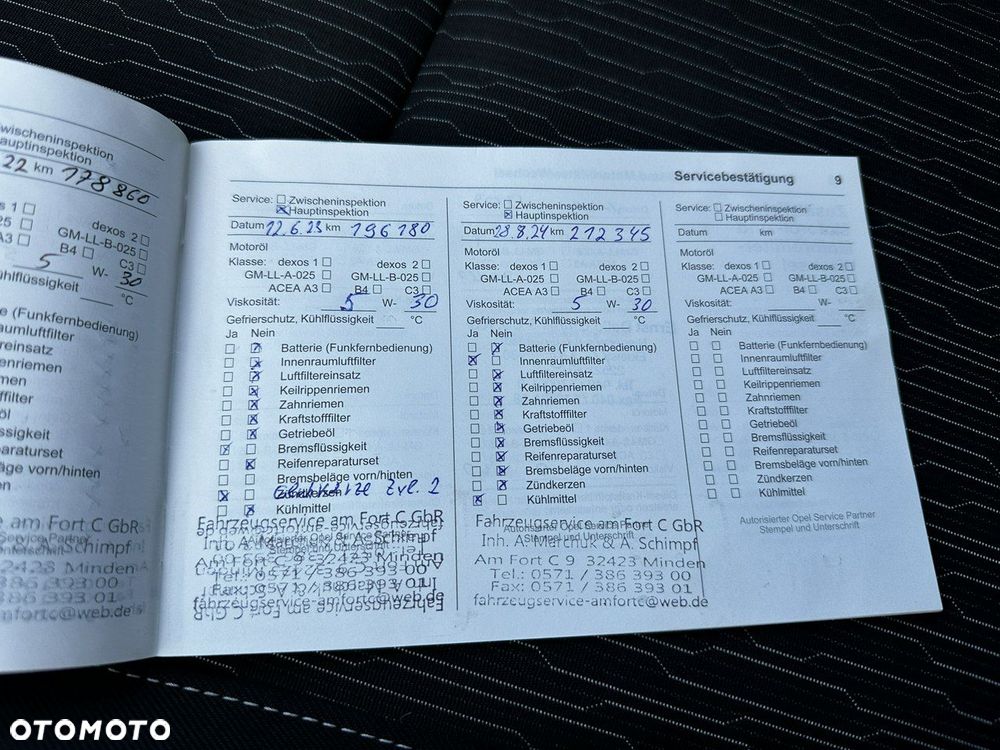 wischeninspektion
auptinspektion
22 km 178 860
s 1
dexos 2
025
GM-LL-B-025
A3
B4
C3
5 W- 30
ühlflüssigkeit
°C
e (Funkfernbedienung)
aumluftfilter
reinsatz
enriemen
men
ffilter
öl
ssigkeit
paraturset
eläge vorn/hinten
en
e am Fort C GbR
Service Partner
Schimpf
32423 Minden
386 393 00
386 393 01
mfortc@web.de
Servicebestätigung 9
Service: Zwischeninspektion
Hauptinspektion
Datum 22.6.23 km 196 180
Motoröl
Klasse: dexos 1 dexos 2
GM-LL-A-025 GM-LL-B-025
ACEA A3 B4 C3
Viskosität: 5 W- 30
Gefrierschutz, Kühlflüssigkeit °C
Ja Nein
Batterie (Funkfernbedienung)
Innenraumluftfilter
Luftfiltereinsatz
Keilrippenriemen
Zahnriemen
Kraftstofffilter
Getriebeöl
Bremsflüssigkeit
Reifenreparaturset
Bremsbeläge vorn/hinten
Zündkerzen
Kühlmittel
Fahrzeugservice am Fort C GbR
Inh. A. Marchuk & A. Schimpf
Am Fort C 9 32423 Minden
Tel.: 0571 / 386 393 00
fahrzeugservice-amfortc@web.de
Service: Zwischeninspektion
Hauptinspektion
Datum 28.8.24 km 212 345
Motoröl
Klasse: dexos 1 dexos 2
GM-LL-A-025 GM-LL-B-025
ACEA A3 B4 C3
Viskosität: 5 W- 30
Gefrierschutz, Kühlflüssigkeit °C
Ja Nein
Batterie (Funkfernbedienung)
Innenraumluftfilter
Luftfiltereinsatz
Keilrippenriemen
Zahnriemen
Kraftstofffilter
Getriebeöl
Bremsflüssigkeit
Reifenreparaturset
Bremsbeläge vorn/hinten
Zündkerzen
Kühlmittel
Fahrzeugservice am Fort C GbR
Autorisierter Opel Service Partner
Stempel und Unterschrift
Inh. A. Marchuk & A. Schimpf
Am Fort C 9 32423 Minden
Tel.: 0571 / 386 393 00
Fax: 0571 / 386 393 01
fahrzeugservice-amfortc@web.de
Service: Zwischeninspektion
Hauptinspektion
Datum km
Motoröl
Klasse: dexos 1 dexos 2
GM-LL-A-025 GM-LL-B-025
ACEA A3 B4 C3
Viskosität: W-
Gefrierschutz, Kühlflüssigkeit °C
Ja Nein
Batterie (Funkfernbedienung)
Innenraumluftfilter
Luftfiltereinsatz
Keilrippenriemen
Zahnriemen
Kraftstofffilter
Getriebeöl
Bremsflüssigkeit
Reifenreparaturset
Bremsbeläge vorn/hinten
Zündkerzen
Kühlmittel
Autorisierter Opel Service Partner
Stempel und Unterschrift
OTOMOTO